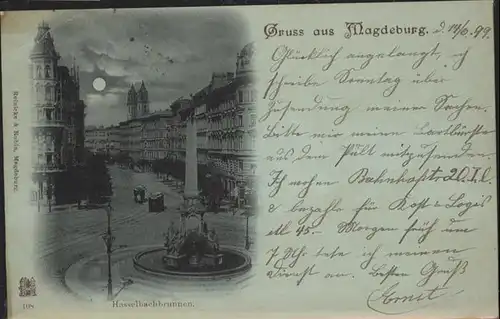 Gruss aus Magdeburg. d. 17/6. 99.
Glücklich angelangt, ich
schreibe Sonntag über
Zusendung meiner Sachen.
Bitte mir meine
aus dem Pult mitzusenden.
Ich wohne Bahnhofstr. 20 I. l.
& bezahle für Kost & Logis
45.- Morgen früh um
7 Uhr trete ich meinen
Dienst an. Besten Gruß
Ernst
Reinicke & Rubin, Magdeburg.
Hasselbachbrunnen.